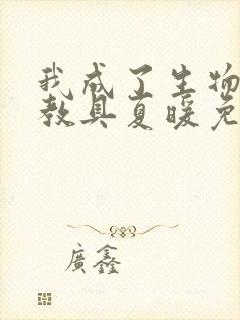 我成了生物
教具夏暖免
廣鑫